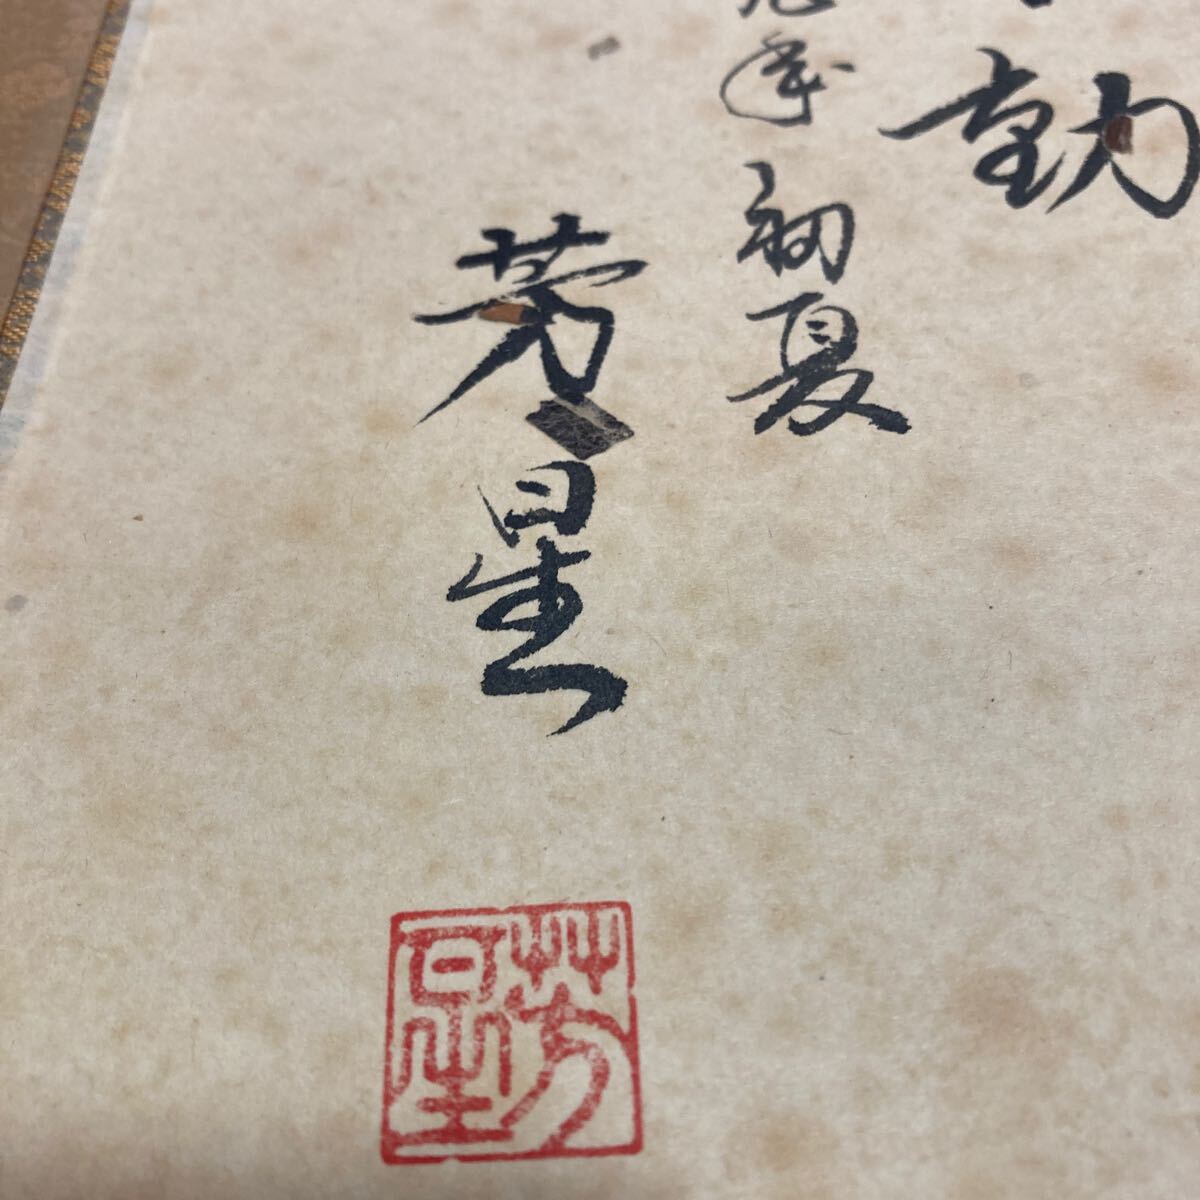 動
年初夏
芳星
芳星